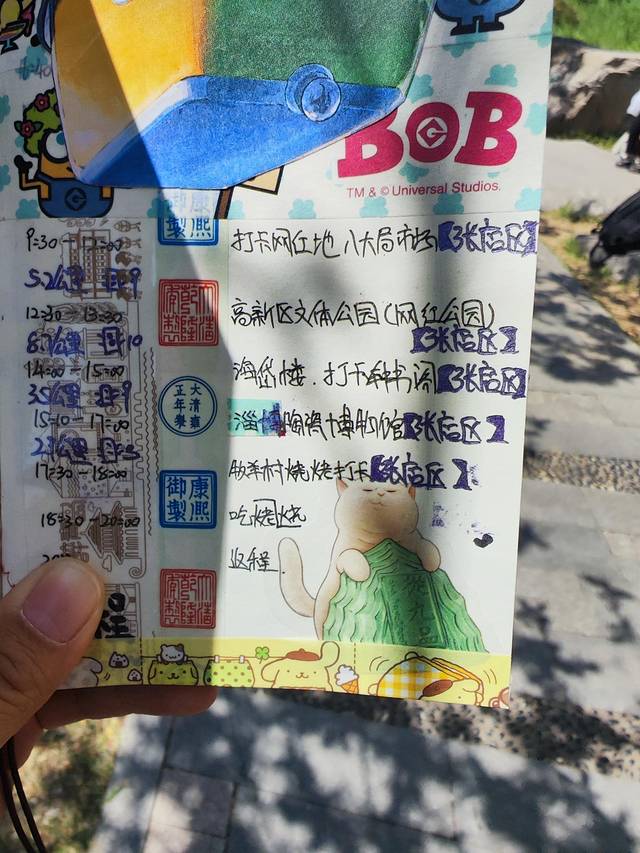 BOB
TM & © Universal Studios.
康熙御製
9:30-12:00 打卡网红地 八大局市场【张店区】
5.2公里
大清乾隆年製
12:30-13:30 高新区文体公园(网红公园)
【张店区】
14:00-15:00 海岱楼.打卡钟书阁【张店区】
大清雍正年製
15:10-17:00 淄博陶瓷博物馆【张店区】
17:30-18:00 牧羊村烧烤打卡【张店区】
康熙御製
18:30-20:00 吃烧烤
返程
大清乾隆年製
程